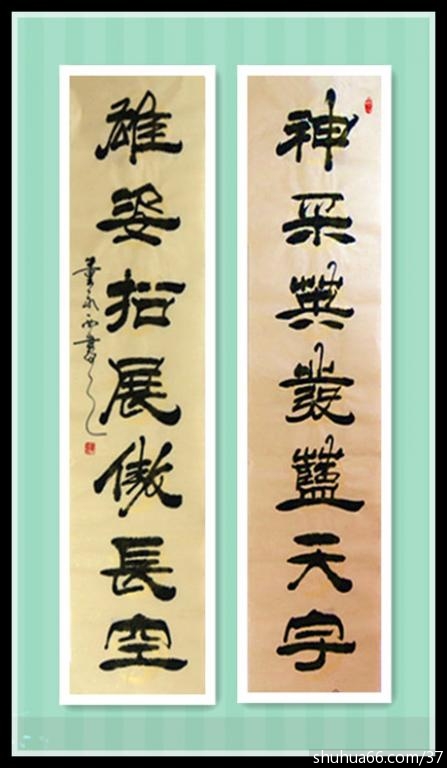 神采英發藍天宇
雄姿拓展傲長空
董永西書
shuhua66.com/37